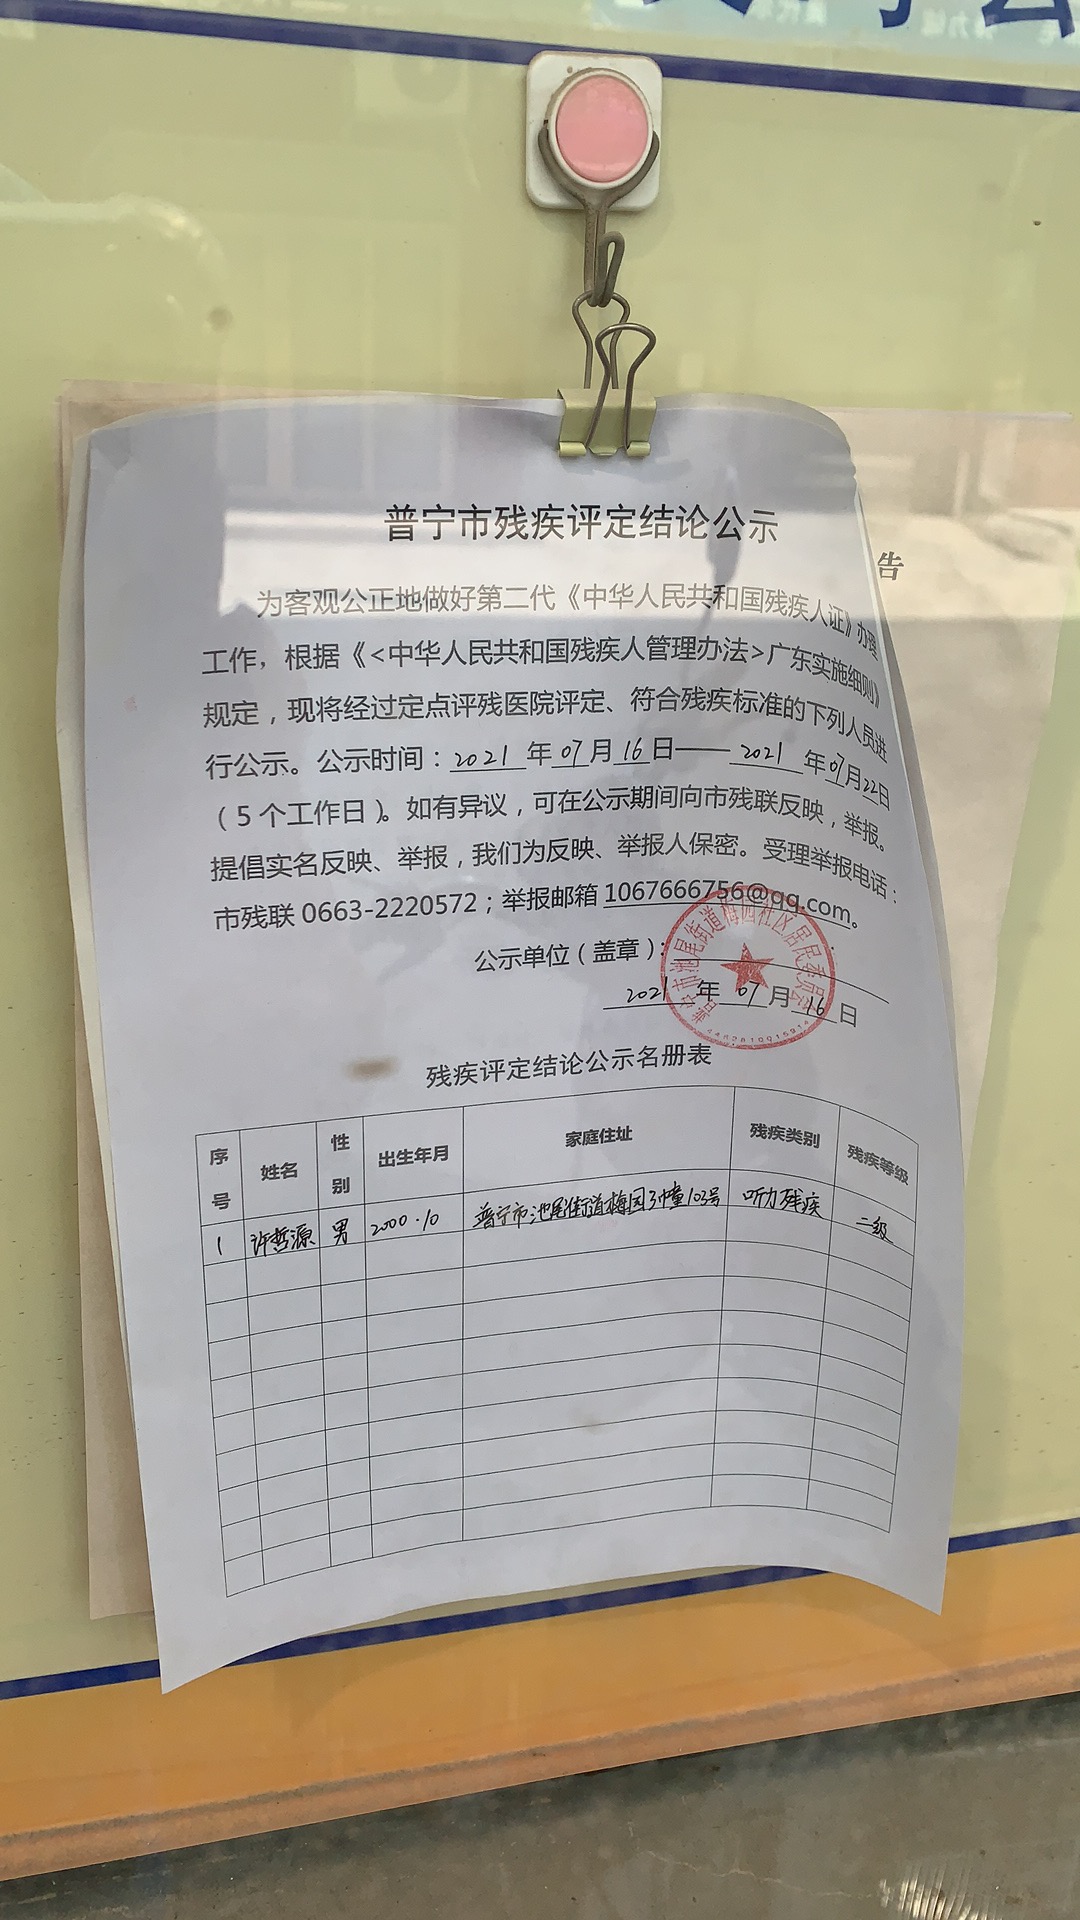 普宁市残疾评定结论公示
告
为客观公正地做好第二代《中华人民共和国残疾人证》办理
工作，根据《<中华人民共和国残疾人管理办法>广东实施细则》
规定，现将经过定点评残医院评定、符合残疾标准的下列人员进
行公示。公示时间：2021年07月16日——2021年07月22日
（5个工作日）。如有异议，可在公示期间向市残联反映，举报。
提倡实名反映、举报，我们为反映、举报人保密。受理举报电话：
市残联 0663-2220572；举报邮箱 1067666756@qq.com。
公示单位（盖章）：
2021年07月16日
市池尾街道梅园社区居民委员会
残疾评定结论公示名册表
序号 姓名 性别 出生年月 家庭住址 残疾类别 残疾等级
1 许哲源 男 2000.10 普宁市池尾街道梅园3幢103号 听力残疾 二级